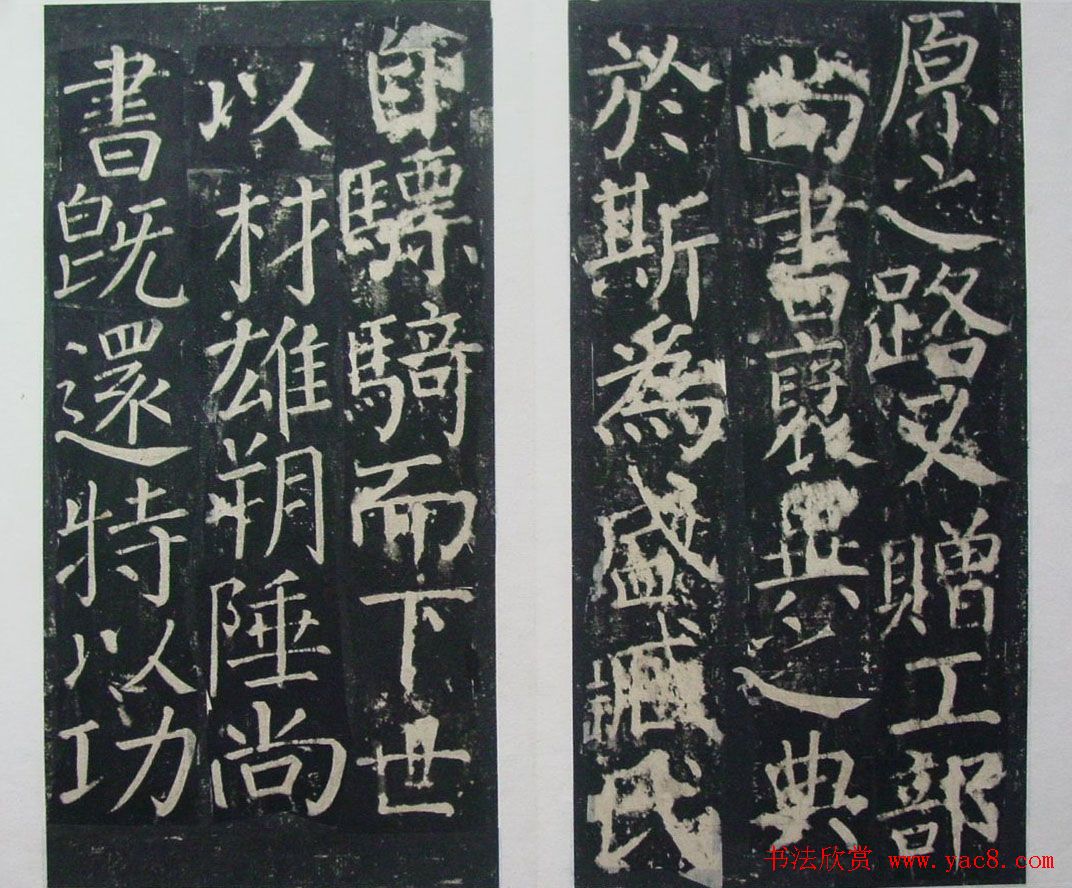 原之路又贈工部
尚書褒異之典
於斯為盛臧氏
自驃騎而下世
以材雄朔陲尚
書既還特以功
书法欣赏 www.yac8.com